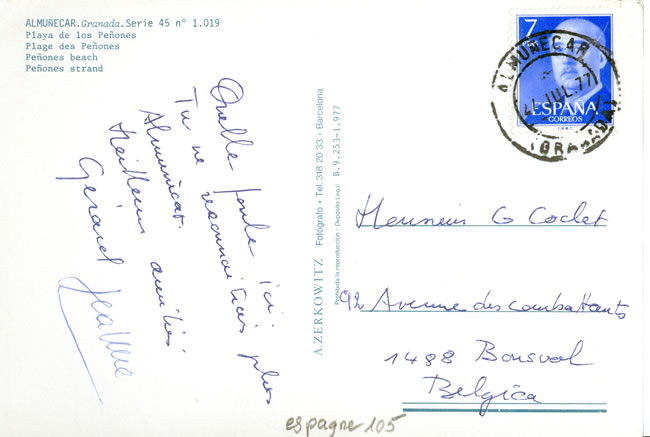 ALMUÑECAR. Granada. Serie 45 n° 1.019
Playa de los Peñones
Plage des Peñones
Peñones beach
Peñones strand
Quelle foule ici.
Tu ne reconnaîtrais plus
Almuñecar.
Meilleures amitiés
Gérard Jeanne
A. ZERKOWITZ Fotógrafo • Tel. 318 20 33 • Barcelona
Prohibida la reproducción - Depósito Legal B. 9.253-1.977
7
PTAS
ESPAÑA
CORREOS
ALMUÑECAR
JUL. 77
(GRANADA)
Monsieur G Coclet
92 Avenue des combattants
1488 Bousval
Belgica
espagne 105